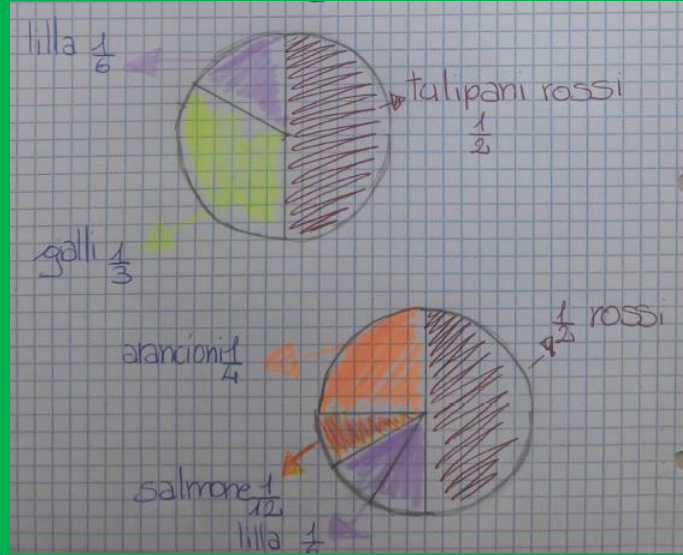 lilla 1/6
tulipani rossi
1/2
galli 1/3
1/2 rossi
arancioni 1/4
salmone 1/12
lilla